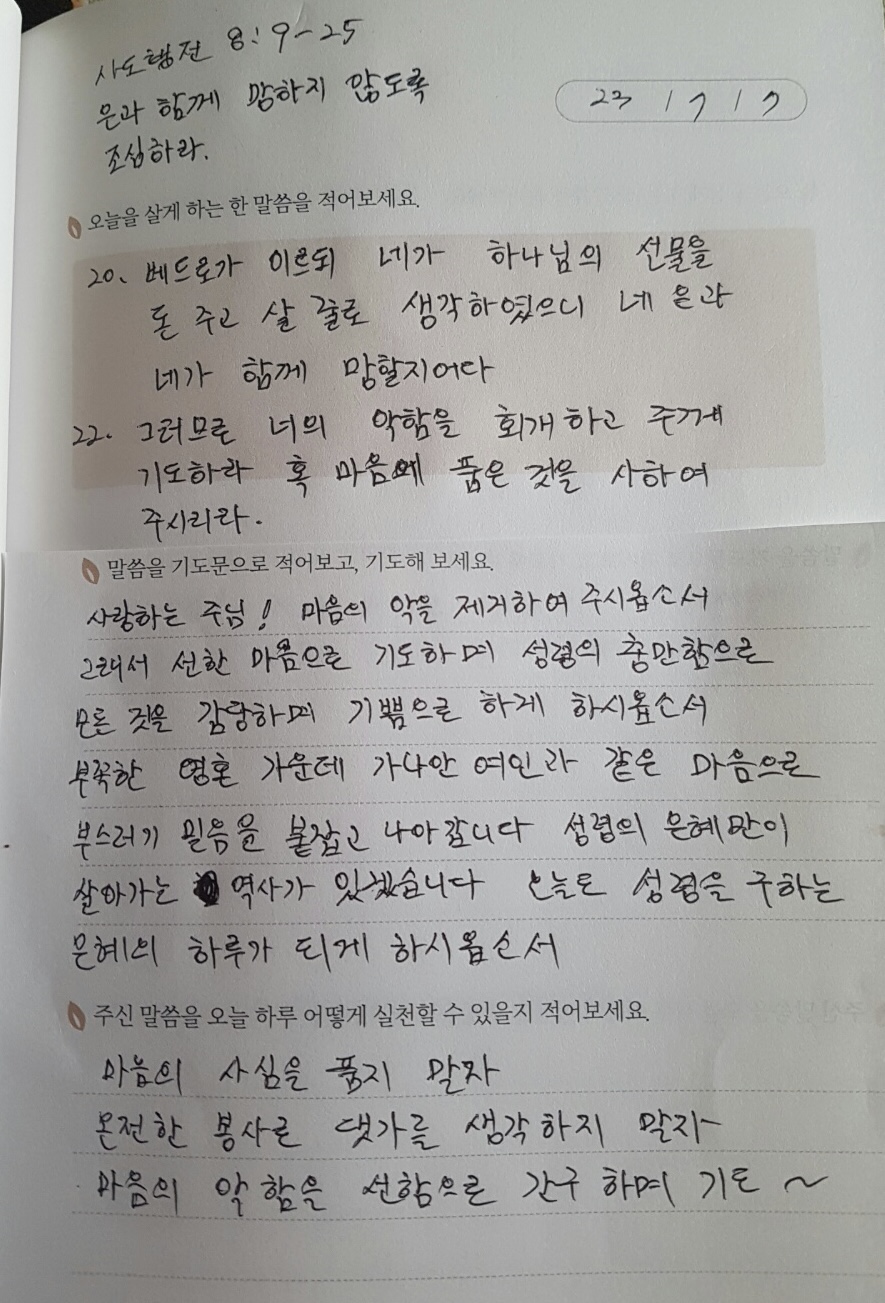 사도행전 8:9-25
은과 함께 망하지 않도록
조심하라.
23 1 7 1 7
오늘을 살게 하는 한 말씀을 적어보세요.
20. 베드로가 이르되 네가 하나님의 선물을
돈 주고 살 줄로 생각하였으니 네 은과
네가 함께 망할지어다
22. 그러므로 너의 악함을 회개하고 주께
기도하라 혹 마음에 품은 것을 사하여
주시리라.
말씀을 기도문으로 적어보고, 기도해 보세요.
사랑하는 주님! 마음의 악을 제거하여 주시옵소서
그래서 선한 마음으로 기도하며 성령의 충만함으로
모든 것을 감당하며 기쁨으로 하게 하시옵소서
부족한 영혼 가운데 가나안 여인과 같은 마음으로
부스러기 믿음을 붙잡고 나아갑니다 성령의 은혜만이
살아가는 역사가 있겠습니다 오늘도 성령을 구하는
은혜의 하루가 되게 하시옵소서
주신 말씀을 오늘 하루 어떻게 실천할 수 있을지 적어보세요.
마음의 사심을 품지 말자
온전한 봉사로 댓가를 생각하지 말자
마음의 악함을 선함으로 간구하며 기도~